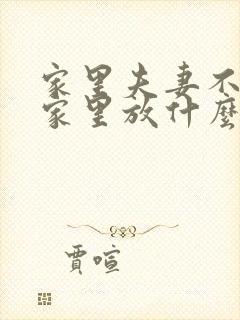 家里夫妻不
家里放什麼
賈喧